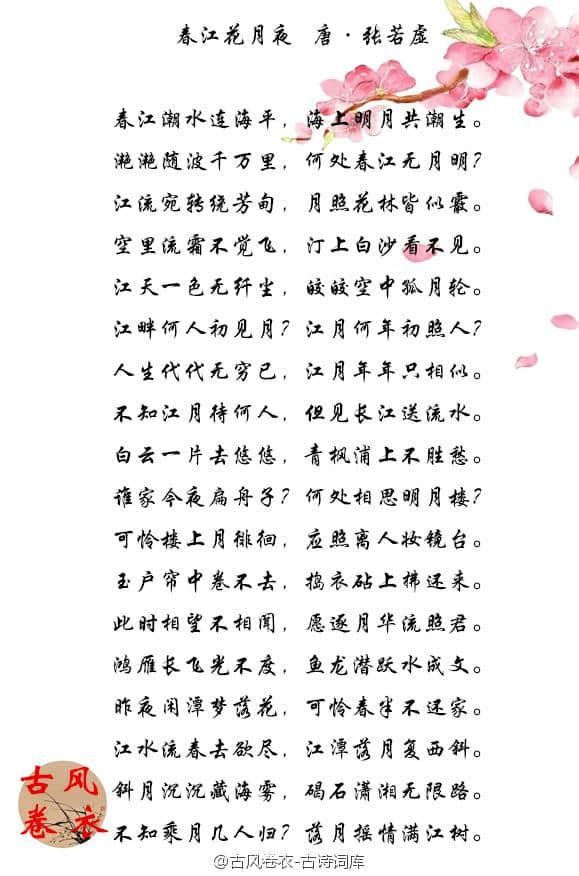 春江花月夜 唐·张若虚
春江潮水连海平，海上明月共潮生。
滟滟随波千万里，何处春江无月明？
江流宛转绕芳甸，月照花林皆似霰。
空里流霜不觉飞，汀上白沙看不见。
江天一色无纤尘，皎皎空中孤月轮。
江畔何人初见月？江月何年初照人？
人生代代无穷已，江月年年只相似。
不知江月待何人，但见长江送流水。
白云一片去悠悠，青枫浦上不胜愁。
谁家今夜扁舟子？何处相思明月楼？
可怜楼上月徘徊，应照离人妆镜台。
玉户帘中卷不去，捣衣砧上拂还来。
此时相望不相闻，愿逐月华流照君。
鸿雁长飞光不度，鱼龙潜跃水成文。
昨夜闲潭梦落花，可怜春半不还家。
江水流春去欲尽，江潭落月复西斜。
斜月沉沉藏海雾，碣石潇湘无限路。
不知乘月几人归？落月摇情满江树。
古风
卷衣
@古风卷衣-古诗词库